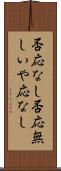 否応なし否応無
しいや応なし